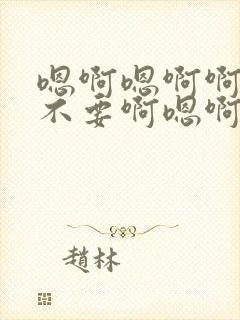 嗯啊嗯啊啊
不要啊嗯啊
趙林